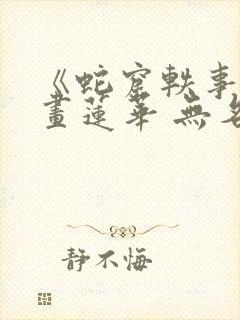 《蛇窟軼事
畫蓮華 無
静不悔